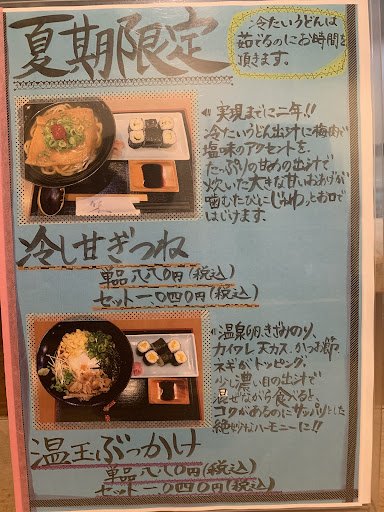 夏期限定
冷たいうどんは
茹でるのにお時間を
頂きます。
《実現までに二年!!
冷たいうどん出汁に梅肉で
塩味のアクセントを、
たーっぷりの甘めの出汁で
炊いた大きな甘いおあげが
噛むたびにじゅわっとお口で
はじけます。
冷し甘ぎつね
単品八八〇円(税込)
セット一、〇四〇円(税込)
《温泉卵、きざみのり、
カイワレ、天カス、かつお節、
ネギがトッピング。
少し濃い目の出汁で
混ぜながら食べると、
コクがあるのにサッパリとした
絶妙なハーモニーに!!
温玉ぶっかけ
単品八八〇円(税込)
セット一、〇四〇円(税込)